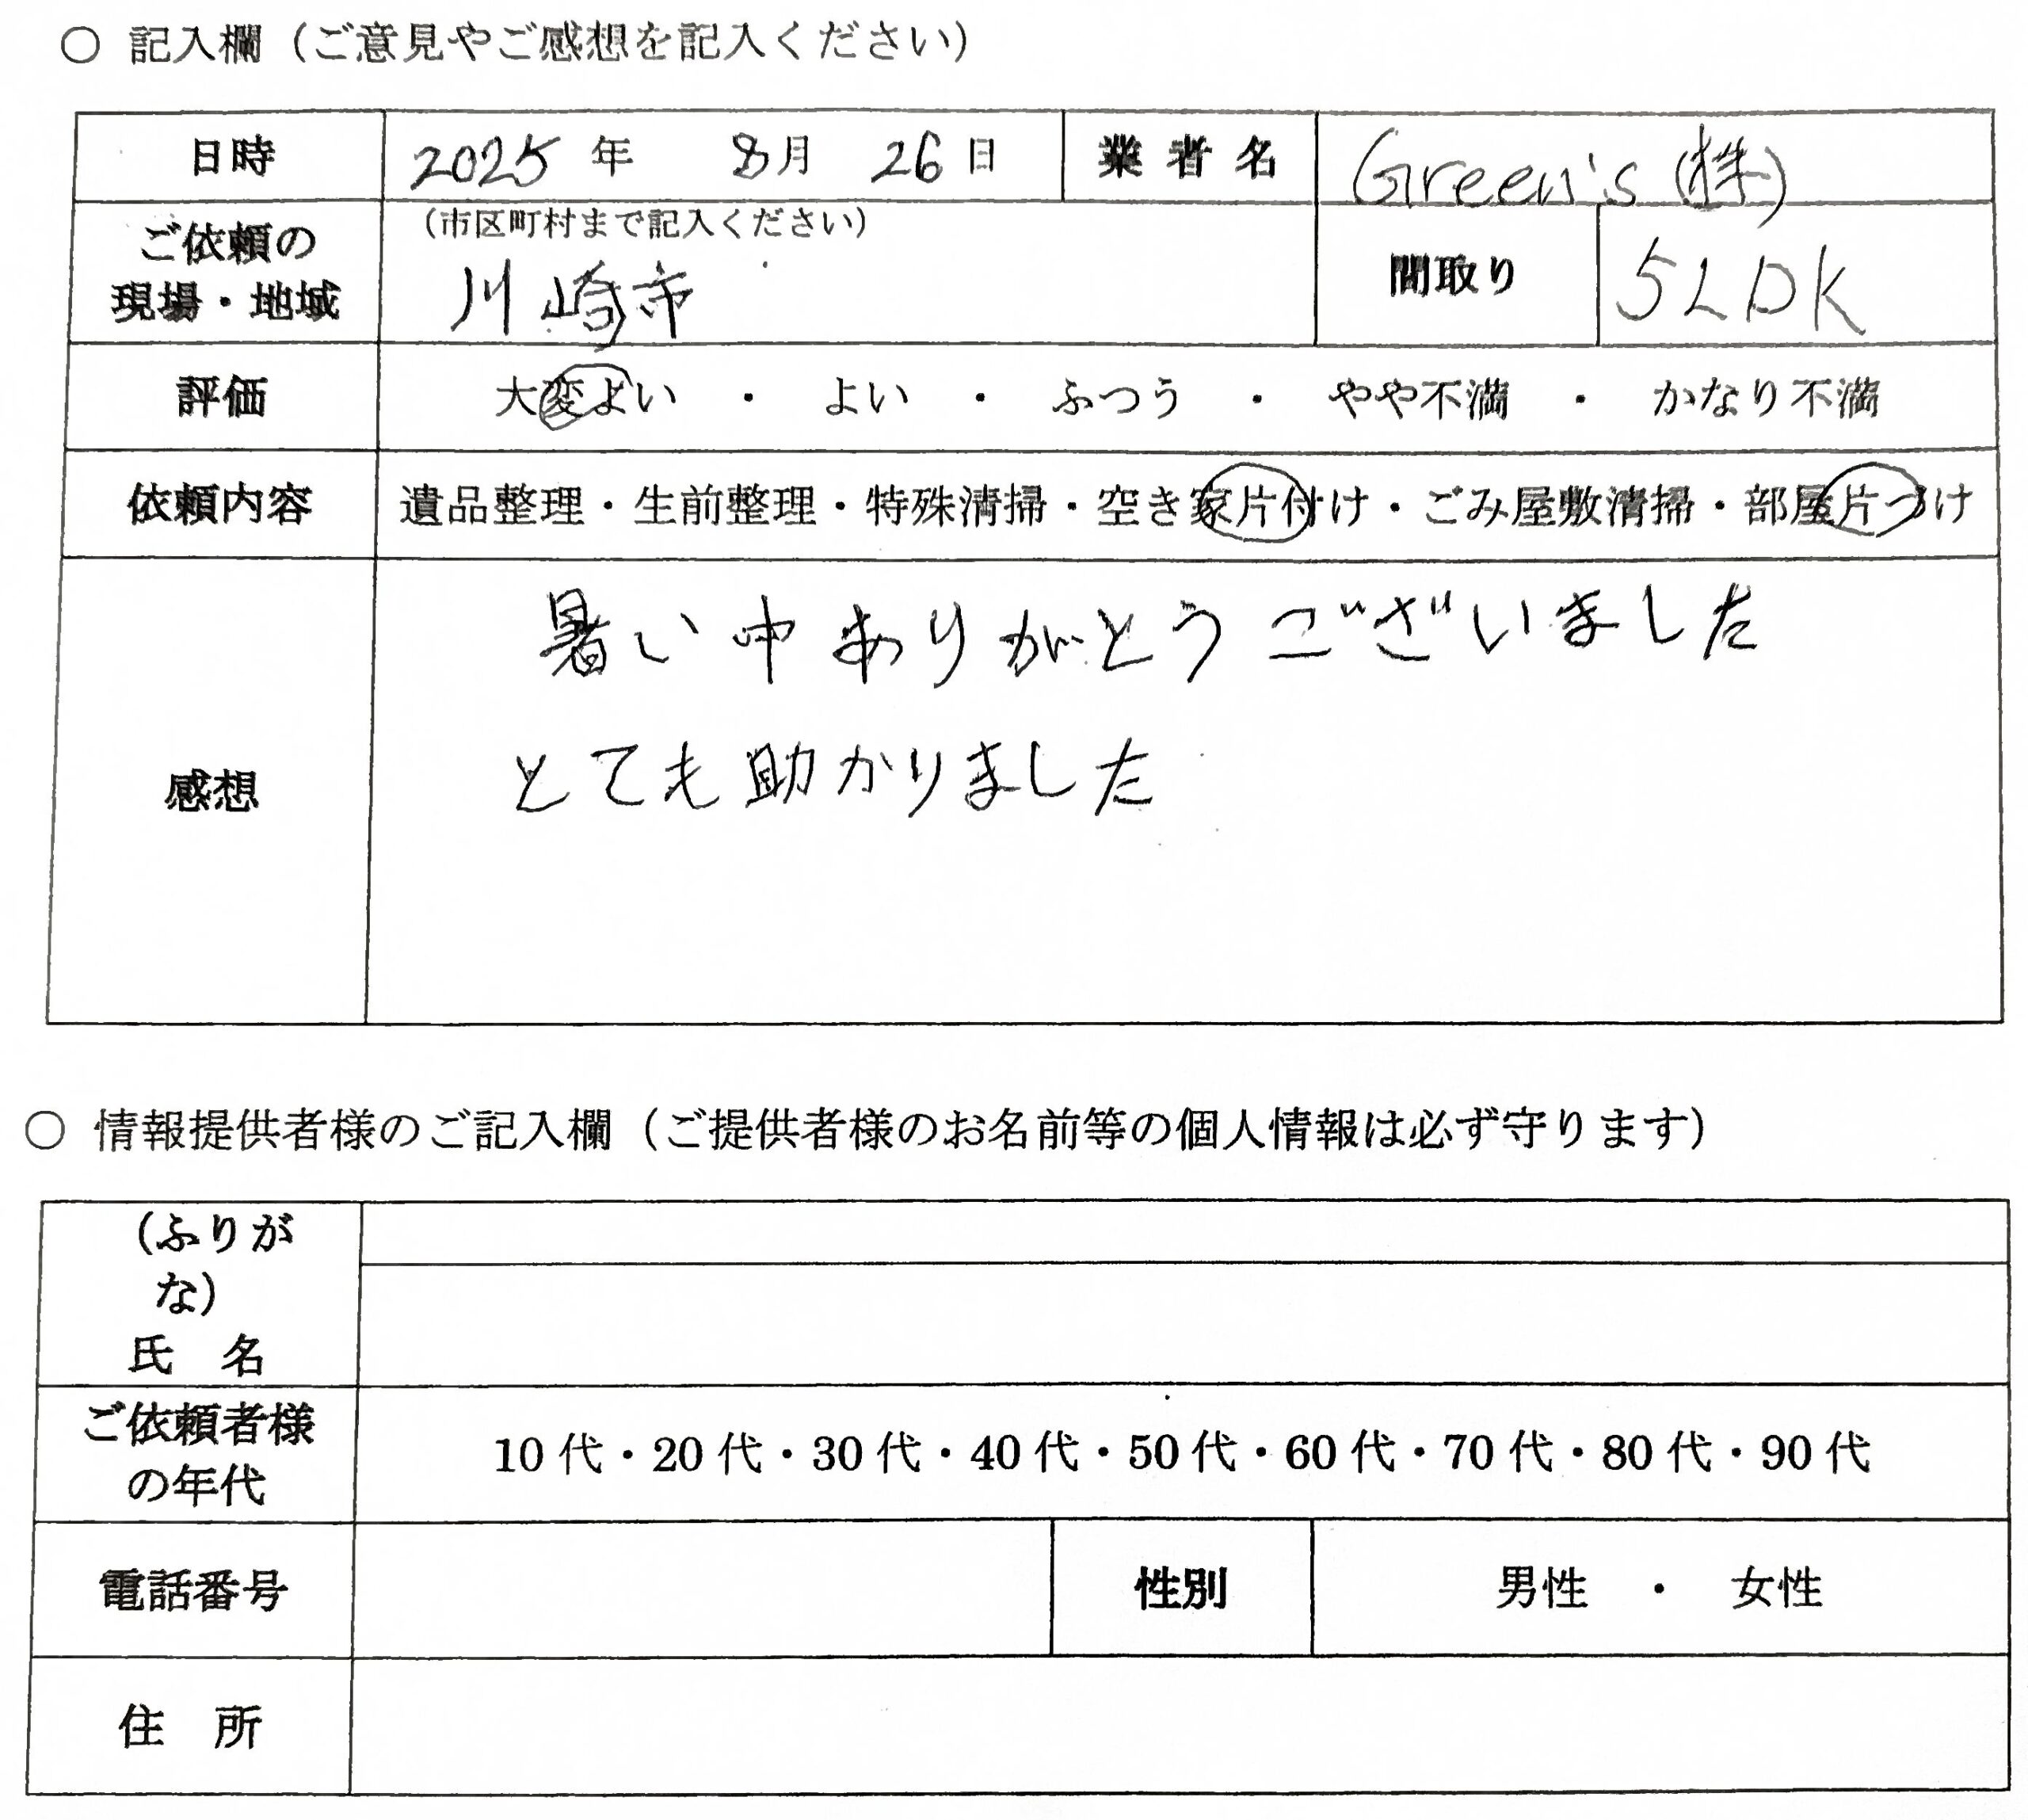 ○ 記入欄（ご意見やご感想を記入ください）
日時 2025 年 8月 26 日 業者名 Green's (株)
ご依頼の
現場・地域
（市区町村まで記入ください）
川崎市
間取り 5LDK
評価 大変よい ・ よい ・ ふつう ・ やや不満 ・ かなり不満
依頼内容 遺品整理・生前整理・特殊清掃・空き家片付け・ごみ屋敷清掃・部屋片づけ
感想
暑い中ありがとうございました
とても助かりました
○ 情報提供者様のご記入欄（ご提供者様のお名前等の個人情報は必ず守ります）
（ふりが
な）
氏 名
ご依頼者様
の年代
10 代・20 代・30 代・40 代・50 代・60 代・70 代・80 代・90 代
電話番号 性別 男性 ・ 女性
住 所